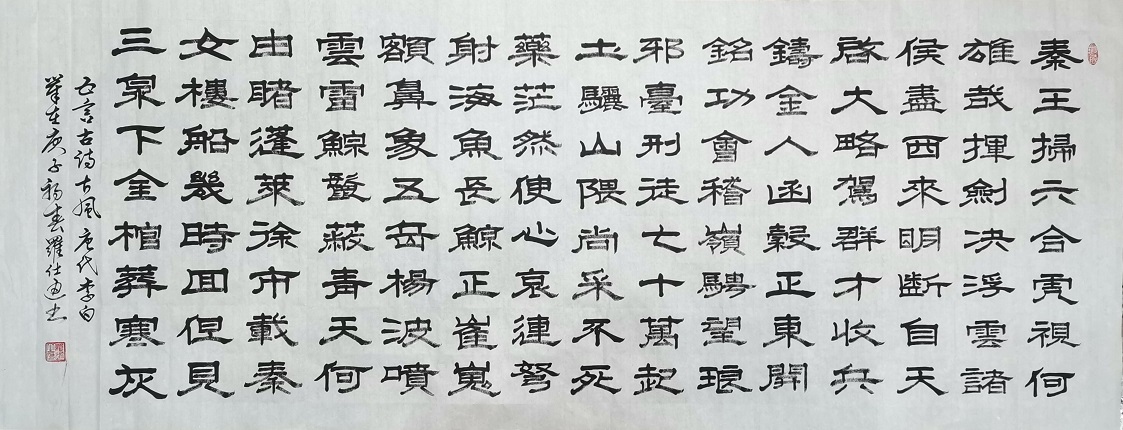 秦王掃六合虎視何
雄哉揮劍决浮雲諸
侯盡西來明斷自天
啓大略駕群才收兵
鑄金人函穀正東開
銘功會稽嶺騁望琅
邪臺刑徒七十萬起
土驪山隈尚采不死
藥茫然使心哀連弩
射海魚長鯨正崔嵬
額鼻象五岳楊波噴
雲雷鯨鬐蔽青天何
由睹蓬萊徐市載秦
女樓船幾時回但見
三泉下金棺葬寒灰
五言古詩古風唐代李白
歲在庚子初春羅仕書